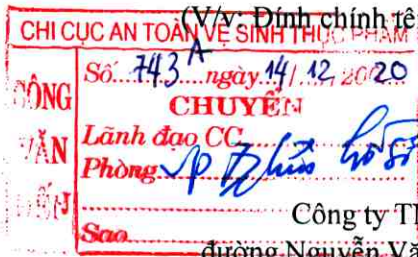 (V/v: Đính chính tê
CHI CỤC AN TOÀN VỆ SINH THỰC PHẨM
CÔNG VĂN ĐẾN
Số 743A ngày 14/12/2020
CHUYỂN
Lãnh đạo CC
Phòng VP
Sao
Công ty T
đường Nguyễn Vă